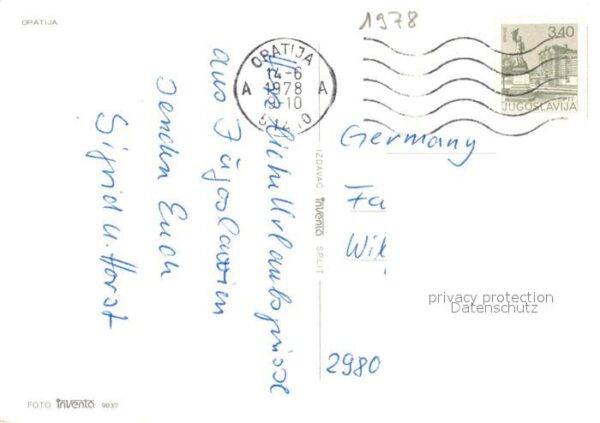 OPATIJA
1978
OPATIJA
14-6
1978
A A
3,40
JUGOSLAVIJA
Herzliche Urlaubsgrüsse
aus Jugoslawien
senden Euch
Sigrid u. Horst
IZDAVAČ inventa SPLIT
Germany
Fa
Wi
privacy protection
Datenschutz
2980
FOTO inventa 9037